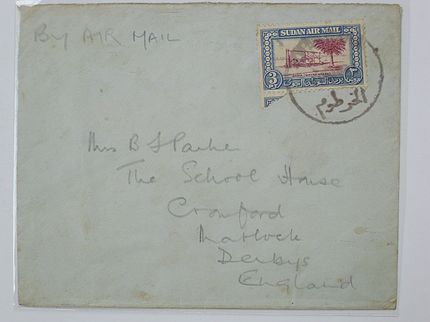 BY AIR MAIL
SUDAN AIR MAIL
3 ٣
الخرطوم
Mrs B F Parker
The School House
Cromford
Matlock
Derbys
England